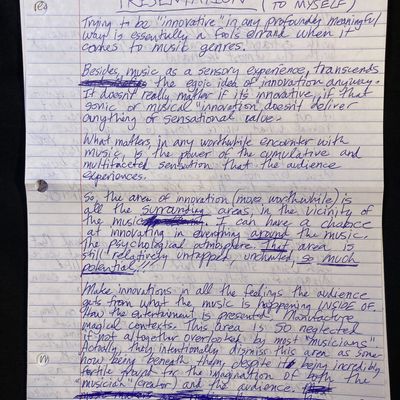 PRESENTATION (TO MYSELF)
Trying to be "innovative" in any profoundly meaningful
way is essentially a fools errand when it
comes to music genres.
Besides, music as a sensory experience, transcends
the egoic idea of innovation anyway.
It doesn't really matter if its innovative, if that
sonic or musical "innovation" doesn't deliver
anything of sensational value.
What matters, in any worthwhile encounter with
music, is the power of the cumulative and
multifaceted sensation that the audience
experiences.
So, the area of innovation (more worthwhile) is
all the surrounding areas, in the vicinity of
the music. I can have a chance
at innovating in everything around the music.
The psychological atmosphere. That area is
still relatively untapped, uncharted, so much
potential!!!
Make innovations in all the feelings the audience
gets from what the music is happening INSIDE OF.
How the entertainment is presented. Manufacture
magical contexts. This area is SO neglected
if not altogether overlooked by most "musicians"
Actually they intentionally dismiss this area as some-
how being beneath them, despite it being incredibly
fertile ground for the imagination of both the
"musician" (creator) and the audience.